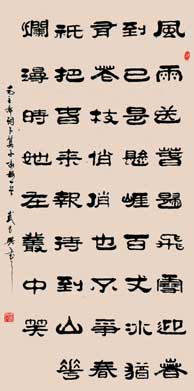 風雨送春歸飛雪迎春
到已是懸崖百丈冰猶
有花枝俏俏也不爭春
祇把春來報待到山花
爛漫時她在叢中笑
毛主席詞卜算子詠梅一首